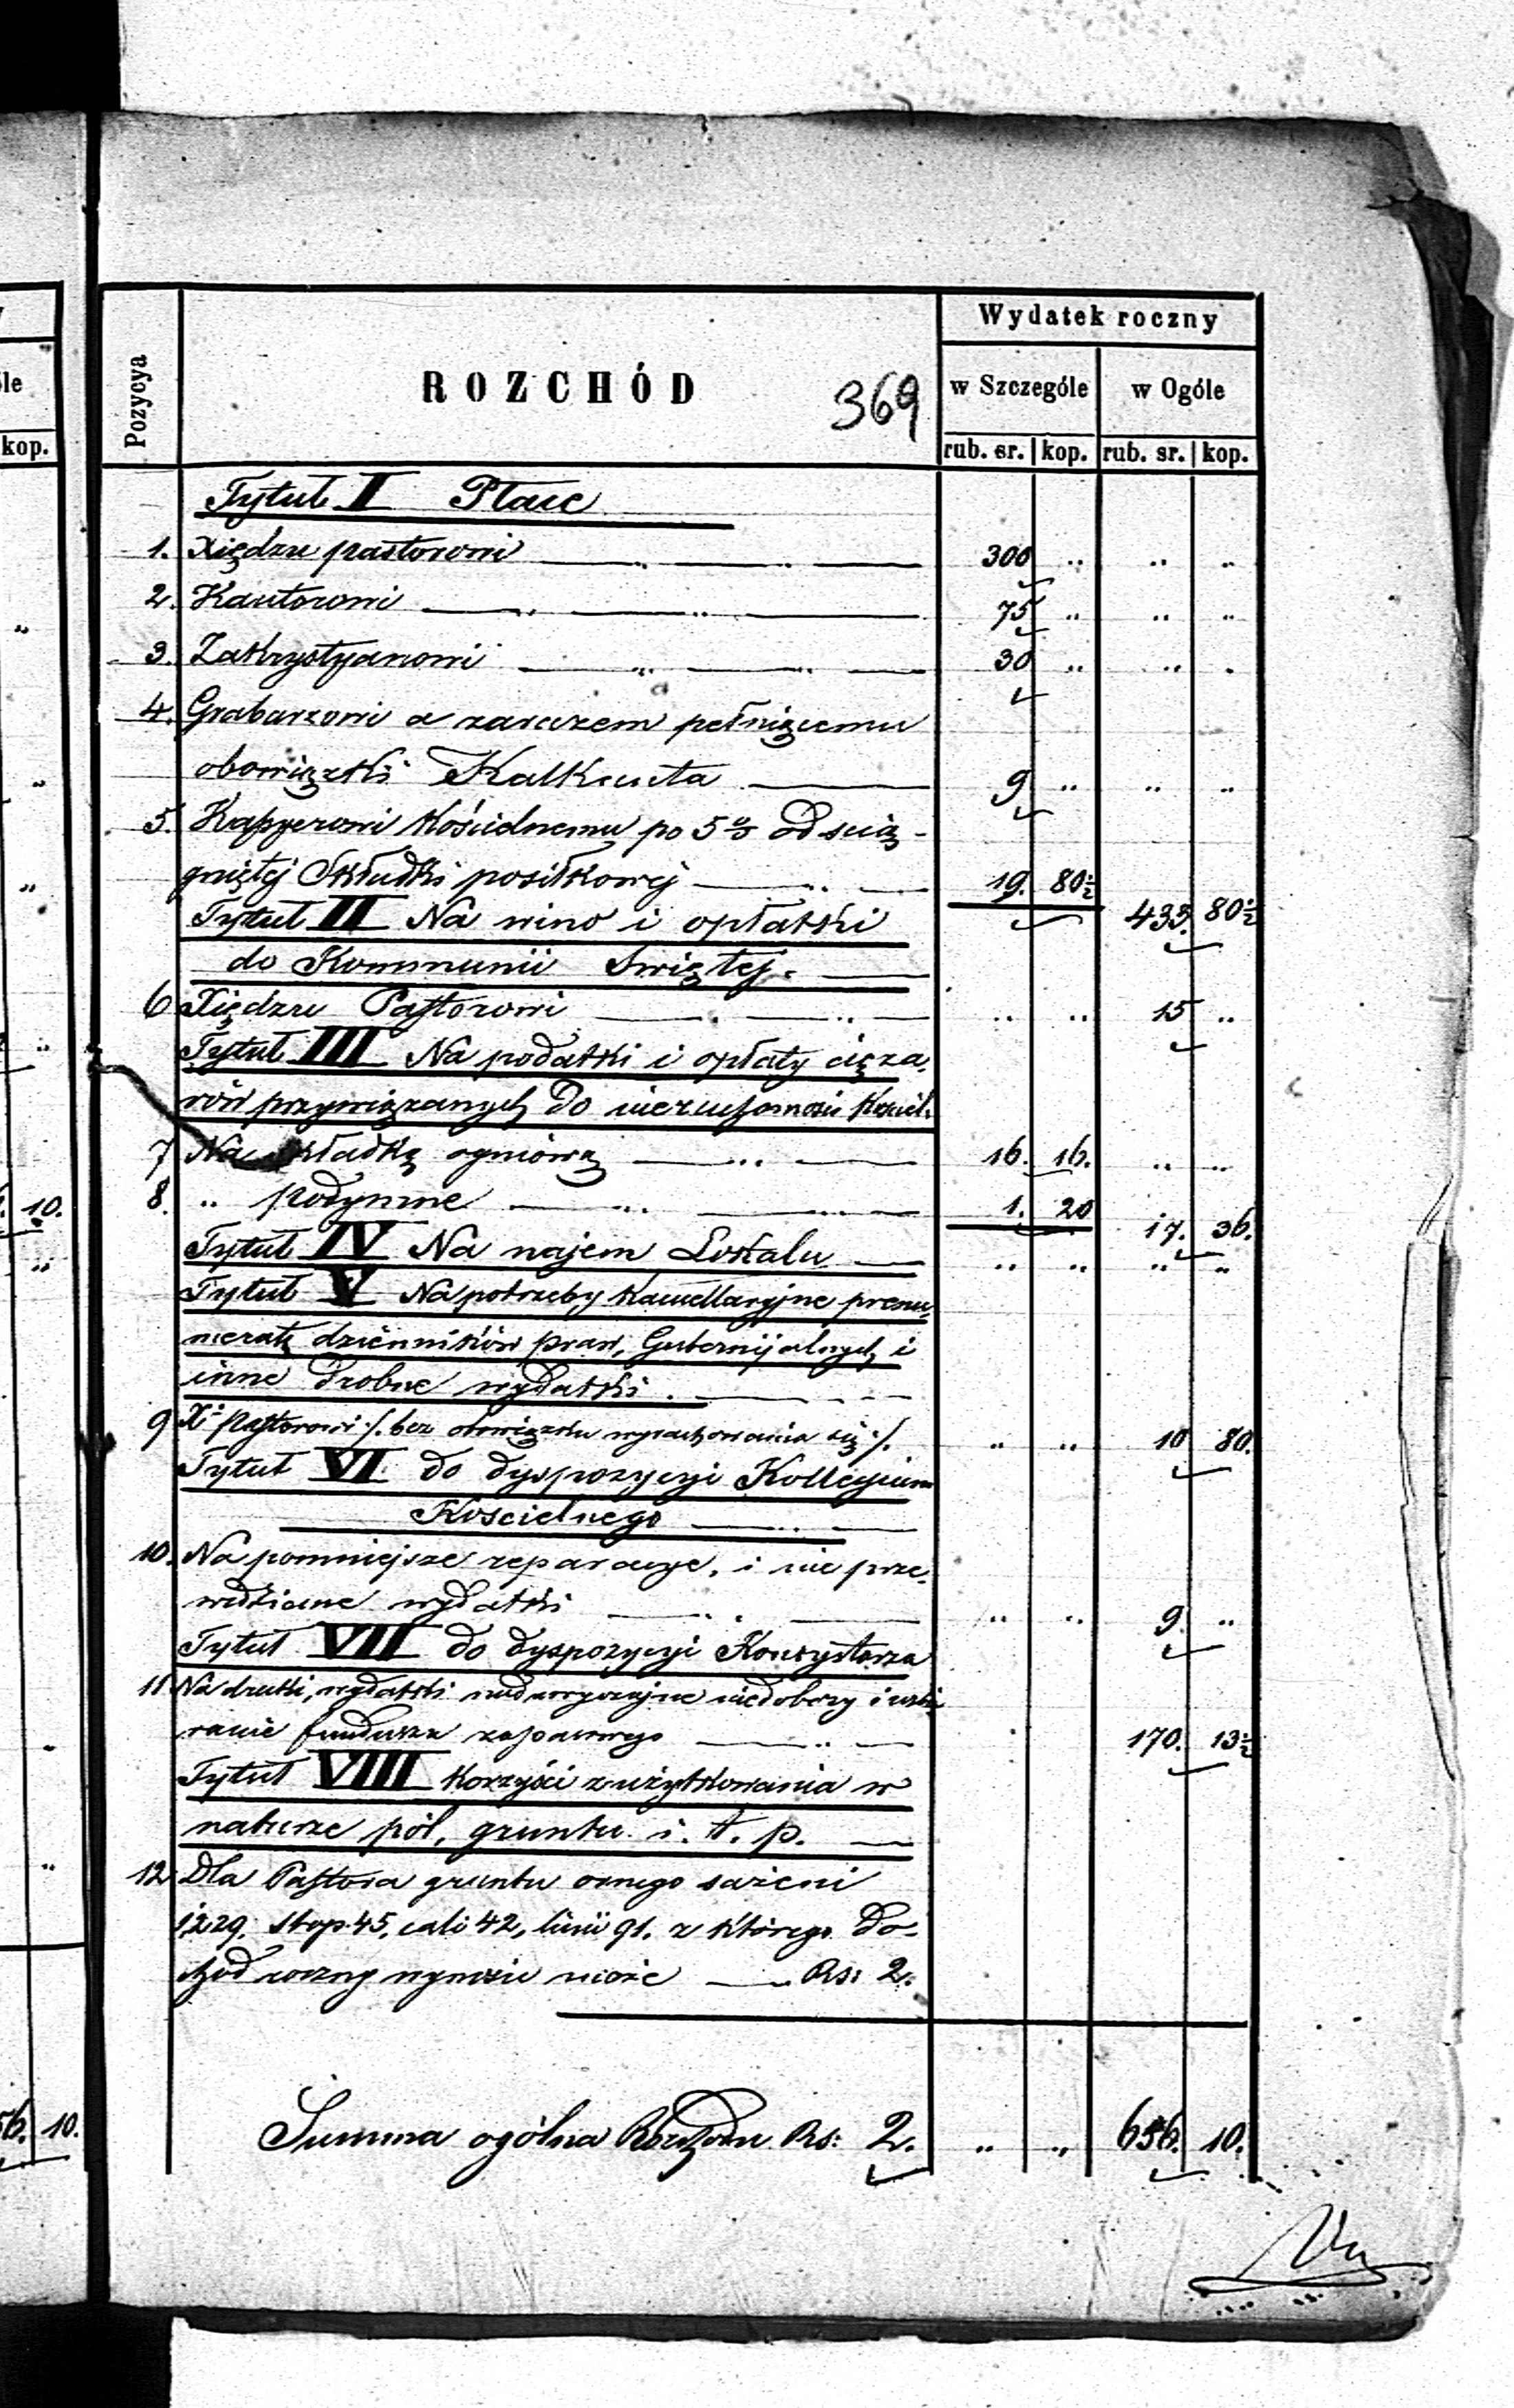 le
kop.
10.
56. 10.
Wydatek roczny
Pozycya
ROZCHÓD
369
w Szczególe w Ogóle
rub. sr. kop. rub. sr. kop.
Tytuł I Płace
1. Xiędzu pastorowi 300 " " "
2. Kantorowi 75 " " "
3. Zakrzystyanowi 30 " " "
4. Grabarzowi a zarazem pełniącemu
obowiązki Kalkanta 9 " " "
5. Kassyerowi Kościelnemu po 5% od ścią-
gniętej Składki posiłkowej 19. 80½
433. 80½
Tytuł II Na wino i opłatki
do Kommunii Świętej.
6 Xiędzu Pastorowi " " 15 "
Tytuł III Na podatki i opłaty cięża-
rów przywiązanych do nieruchomości Kościel.
7 Na składkę ogniową 16. 16. " "
8. " podymne 1. 20 17. 36.
Tytuł IV Na najem Lokalu " " " "
Tytuł V Na potrzeby Kancellaryjne prenu-
meratę dzienników praw, Gubernijalnych i
inne drobne wydatki.
9 X: Pastorowi /. bez obowiązku wyrachowania się ./. " " 10 80.
Tytuł VI do dyspozycyi Kollegium
Kościelnego
10. Na pomniejsze reparacye, i nie prze-
widziane wydatki " " 9. "
Tytuł VII do dyspozycyi Konsystorza
11. Na druki, wydatki nadzwyczajne niedobory i uzbi-
ranie funduszu zapasowego 170. 13½
Tytuł VIII Korzyści z użytkowania w
naturze pól, gruntu i. t. p.
12. Dla Pastora gruntu ornego sążeni
1229. stop. 45, cali 42, linii 91. z którego do-
chód roczny wynosić może Rs: 2.
Summa ogólna Rozchodu Rs: 2. " " 656. 10.